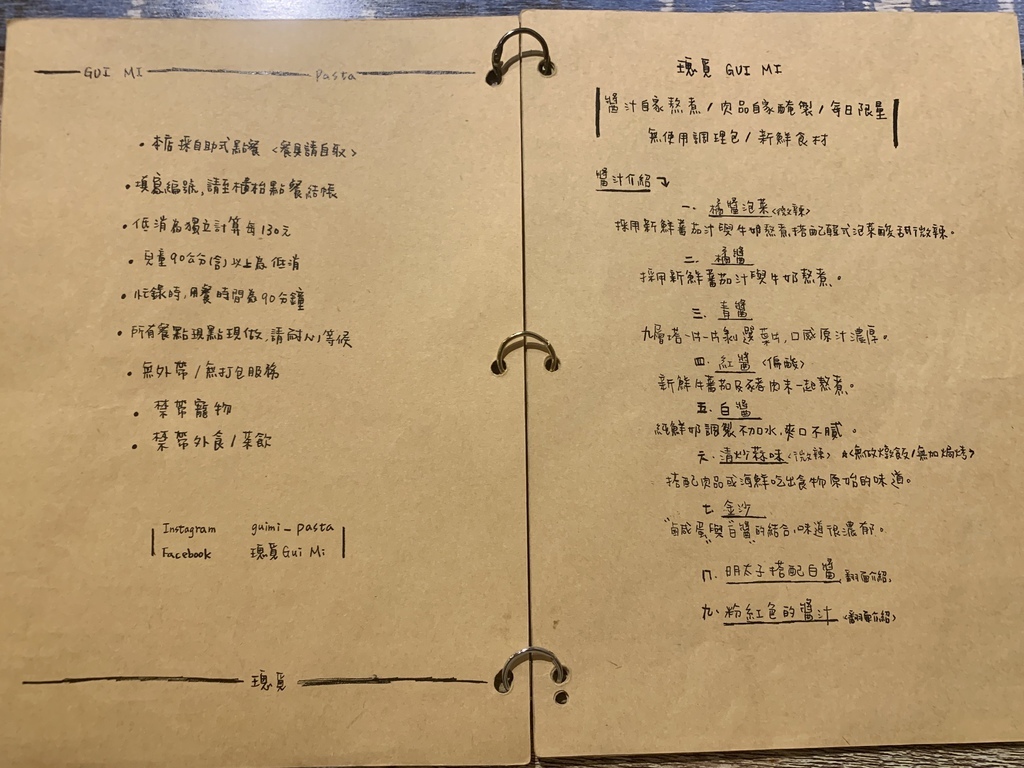 GUI MI Pasta
• 本店採自助式點餐〈餐具請自取〉
• 填寫編號,請至櫃枱點餐結帳
• 低消為獨立計算每130元
• 兒童90公分(含)以上為低消
• 忙錄時,用餐時間為90分鐘
• 所有餐點現點現做,請耐心等候
• 無外帶/無打包服務
• 禁帶寵物
• 禁帶外食/菜飲
Instagram guimi_pasta
Facebook 瑰覓Gui Mi
瑰覓
瑰覓 GUI MI
醬汁自家熬煮/肉品自家醃製/每日限量
無使用調理包/新鮮食材
醬汁介紹
一.橘醬泡菜〈微辣〉
採用新鮮蕃茄汁與牛奶熬煮,搭配韓式泡菜酸甜微辣。
二.橘醬
採用新鮮蕃茄汁與牛奶熬煮。
三.青醬
九層塔一片一片剝選葉片,口感原汁濃厚。
四.紅醬〈偏酸〉
新鮮牛蕃茄及豬肉末一起熬煮。
五.白醬
純鮮奶調製不加水,爽口不膩。
六.清炒蒜味〈微辣〉*〈無做燉飯/無加焗烤〉
搭配肉品或海鮮吃出食物原始的味道。
七.金沙
"鹹蛋"與"白醬"的結合,味道很濃郁。
八.明太子搭配白醬 翻面介紹,
九.粉紅色的醬汁〈翻面介紹〉